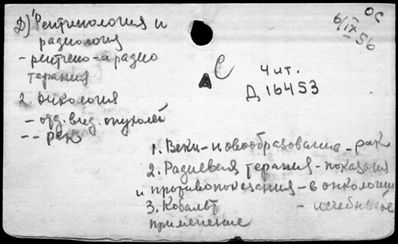 Д) Рентгенология и
радиология
- рентгено- и радио
терапия
2. онкология
- отд. вид. опухолей
- - рак
ОС
6/IX 56
С
А
4 чит.
Д 16453
1. Веки - новообразования - рак
2. Радиевая терапия - показания
и противопоказания - в онкологии
3. Кобальт - лечебные
применение